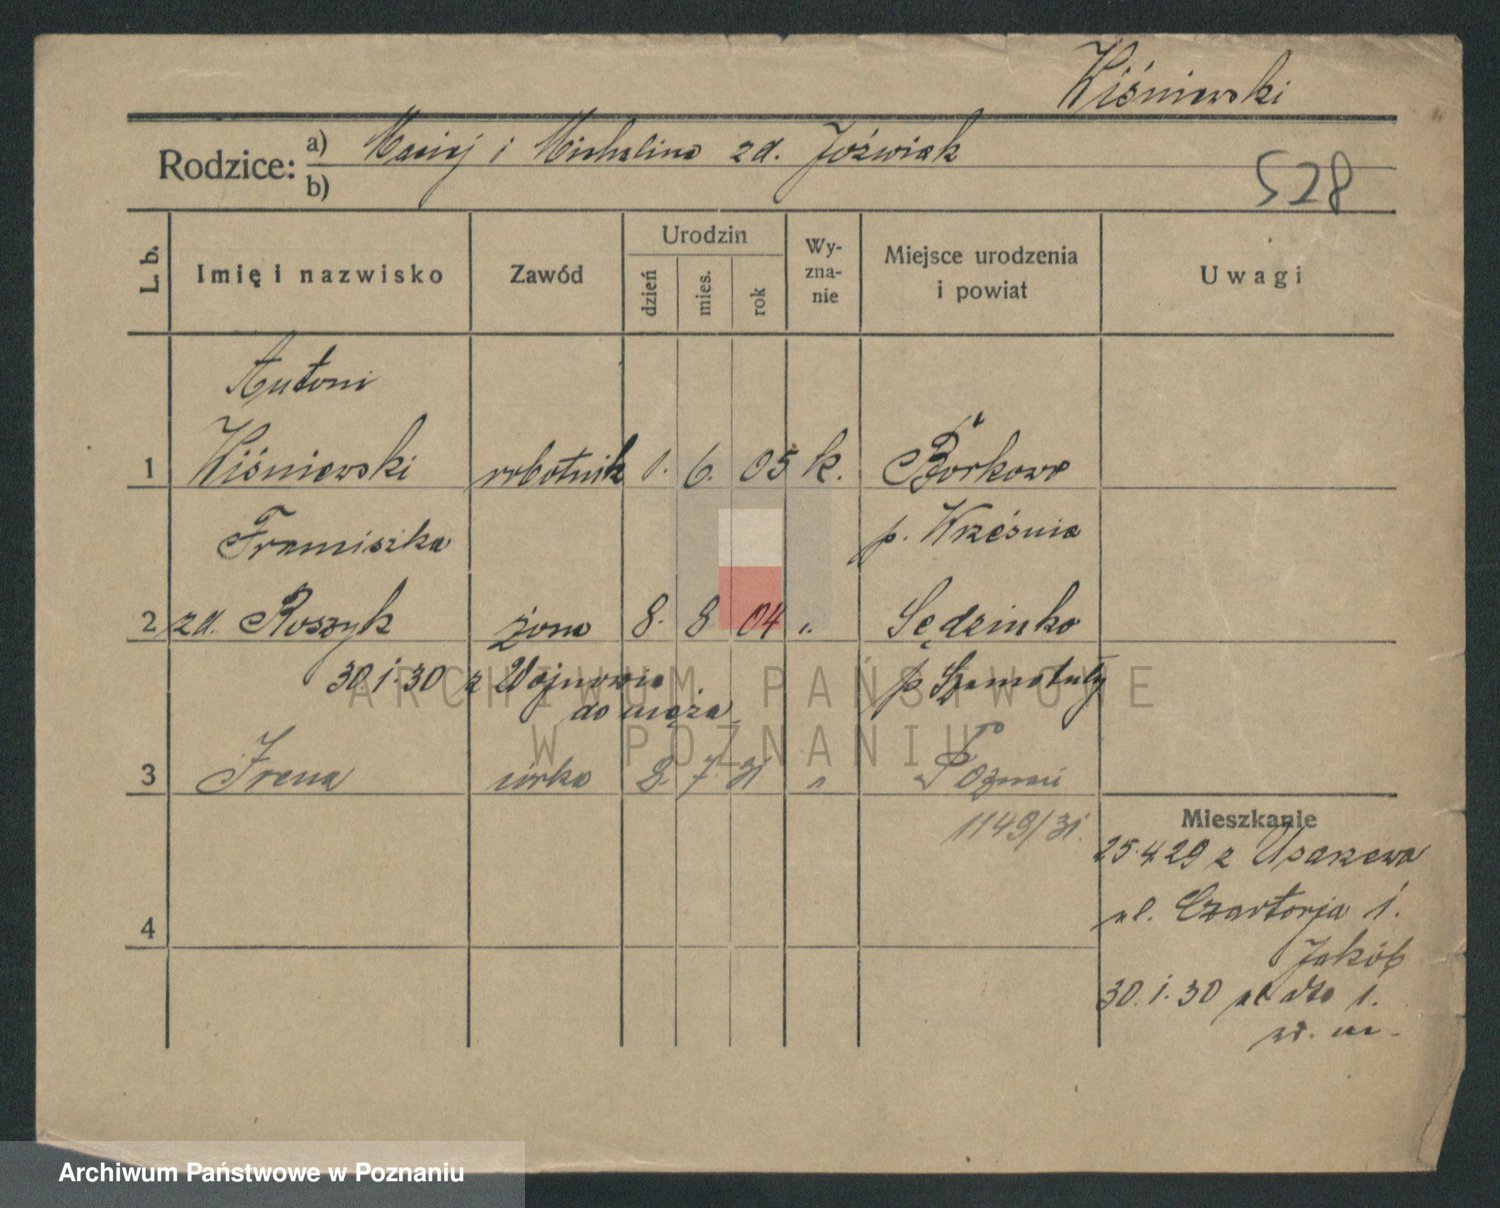 Wiśniewski
Rodzice: a) Maciej i Michalina zd. Jóźwiak
b)
528
L. b. Imię i nazwisko Zawód Urodzin dzień mies. rok Wyzna-nie Miejsce urodzenia i powiat Uwagi
Antoni
1 Wiśniewski robotnik 1. 6. 05 k. Borkowo
Franciszka p. Września
2 zd. Roszyk żona 8. 8 04 ,, Sędzinko
30.1.30 z Wojnowic p Szamotuły
do męża
3 Irena córka 8. 7. 31 " Poznań
1149/31.
Mieszkanie
25.4.29 z Usarzewa
4 ul. Czartorja 1.
Jakób
30.1.30 ul dto 1.
ARCHIWUM PAŃSTWOWE
W POZNANIU
Archiwum Państwowe w Poznaniu